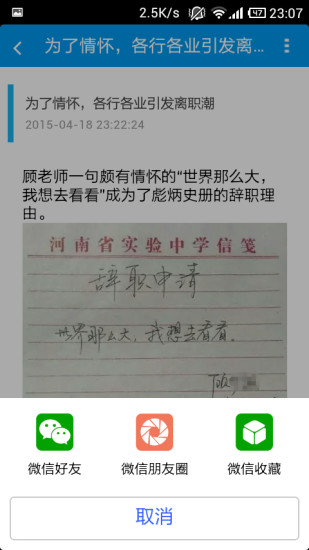 2.5K/s 47 23:07
为了情怀，各行各业引发离...
为了情怀，各行各业引发离职潮
2015-04-18 23:22:24
顾老师一句颇有情怀的“世界那么大，
我想去看看”成为了彪炳史册的辞职理
由。
河南省实验中学信笺
辞职申请
世界那么大，我想去看看。
微信好友 微信朋友圈 微信收藏
取消